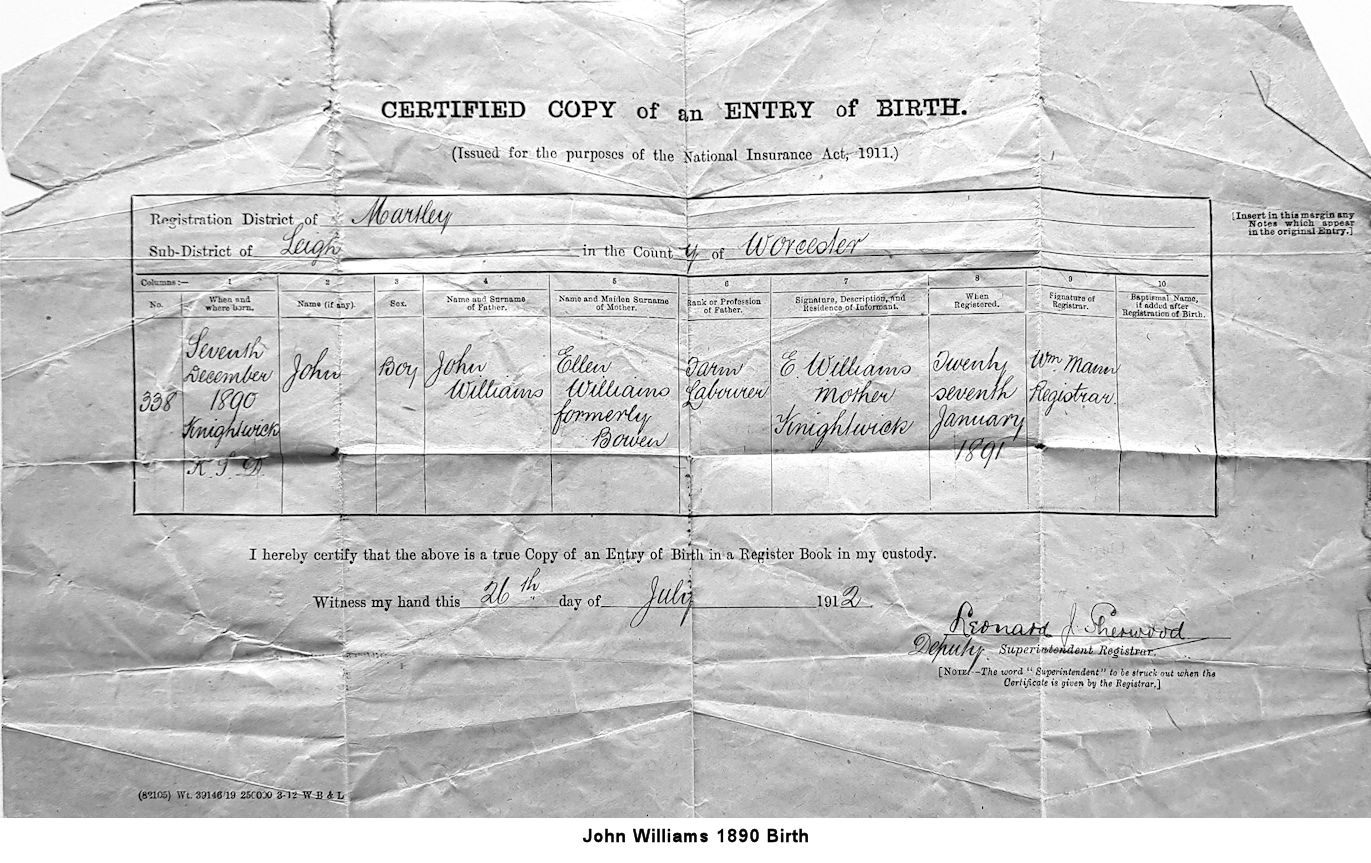 CERTIFIED COPY of an ENTRY of BIRTH.
(Issued for the purposes of the National Insurance Act, 1911.)
Registration District of Martley
Sub-District of Leigh in the County of Worcester
[Insert in this margin any
Notes which appear
in the original Entry.]
Columns:— 1 2 3 4 5 6 7 8 9 10
No.
When and
where born.
Name (if any).
Sex.
Name and Surname
of Father.
Name and Maiden Surname
of Mother.
Rank or Profession
of Father.
Signature, Description, and
Residence of Informant.
When
Registered.
Signature of
Registrar.
Baptismal Name,
if added after
Registration of Birth.
338
Seventh
December
1890
Knightwick
K. S. D.
John
Boy
John
Williams
Ellen
Williams
formerly
Bowen
Farm
Labourer
E Williams
mother
Knightwick
Twenty
seventh
January
1891
Wm Mann
Registrar.
I hereby certify that the above is a true Copy of an Entry of Birth in a Register Book in my custody.
Witness my hand this 26th day of July 1912
Leonard J. Sherwood
Deputy Superintendent Registrar.
[NOTE.—The word "Superintendent" to be struck out when the
Certificate is given by the Registrar.]
(82105) Wt. 39146/19 250000 3-12 W B & L
John Williams 1890 Birth